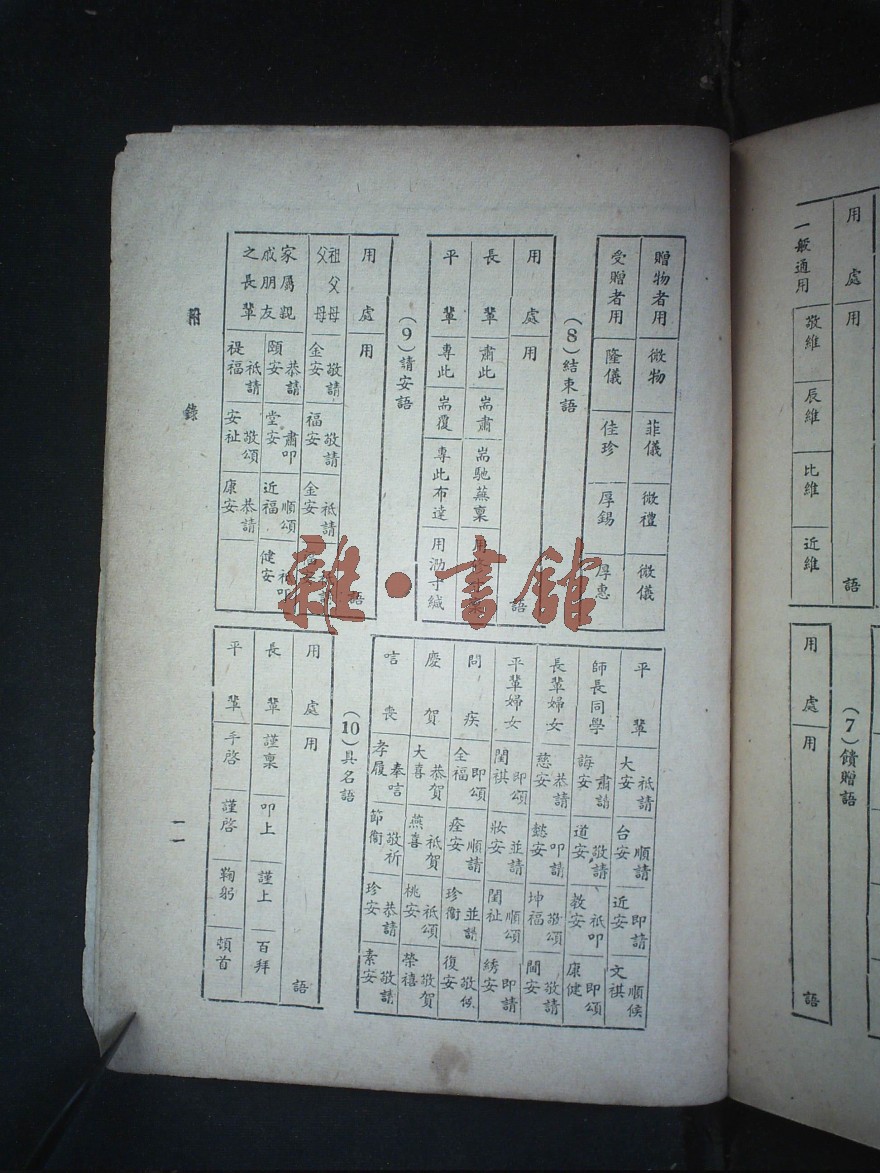 用處 用 語
一般通用 敬維 辰維 比維 近維
(7)饋贈語
用處 用 語
贈物者用 微物 菲儀 微禮 微儀
受贈者用 隆儀 佳珍 厚錫 厚惠
(8)結束語
用處 用 語
長輩 肅此 耑肅 耑馳蕪稟
平輩 專此 耑覆 專此布達 用泐寸緘
(9)請安語
用處 用 語
祖父母父母 敬請金安 敬請福安 祇請金安
家屬親戚朋友之長輩 恭請頤安 肅叩堂安 順頌近福 祇叩健安
祇請禔福 敬頌安祉 恭請康安
平輩 祇請大安 順請台安 即請近安 順候文祺
師長同學 肅請誨安 敬請道安 祇叩教安 即頌康健
長輩婦女 恭請慈安 叩請懿安 敬頌坤福 敬請閫安
平輩婦女 即頌閨祺 並請妝安 順頌閨祉 即請綉安
問疾 即頌全福 順請痊安 並請珍衛 敬候復安
慶賀 恭賀大喜 祇賀燕喜 祇頌桃安 敬賀榮禧
唁喪 奉唁孝履 敬祈節衛 恭請珍安 敬請素安
(10)具名語
用處 用 語
長輩 謹稟 叩上 謹上 百拜
平輩 手啓 謹啓 鞠躬 頓首
附錄
一一
雜·書館